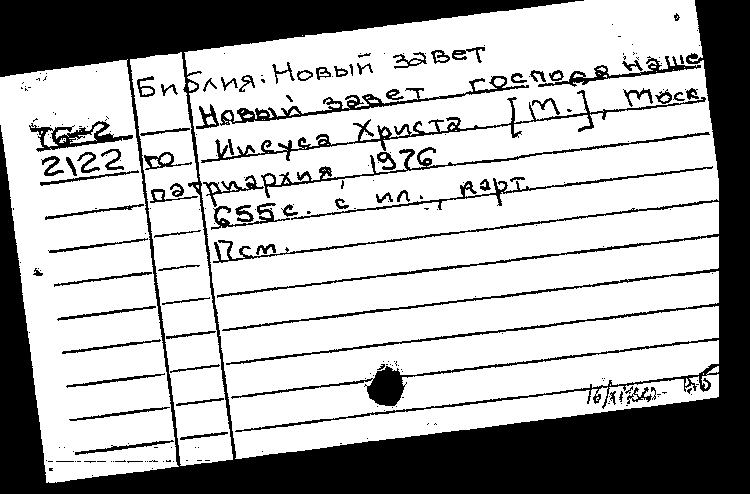 Библия. Новый завет
76-2 Новый завет господа наше
2122 го Иисуса Христа. [М.], Моск.
патриархия, 1976.
655 с. с ил., карт.
17см.